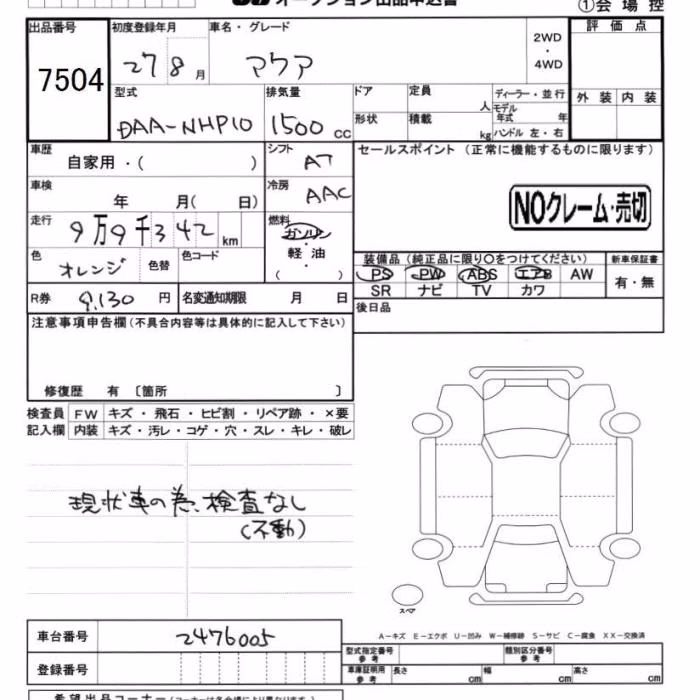 オークション出品申込書
①会場控
出品番号 初度登録年月 車名・グレード 2WD・4WD 評価点
7504 27 8月 アクア
型式 排気量 ドア 定員 人 ディーラー・並行 外装 内装
DAA-NHP10 1500cc 形状 積載 kg モデル年式 年 ハンドル 左・右
車歴 自家用・( ) シフト AT セールスポイント (正常に機能するものに限ります)
車検 年 月( 日) 冷房 AAC NOクレーム・売切
走行 9万9千342km 燃料 ガソリン
軽油
( )
色 オレンジ 色替 色コード
装備品(純正品に限り○をつけてください) 新車保証書
PS PW ABS エアB AW 有・無
SR ナビ TV カワ
R券 9,130円 名変通知期限 月 日
後日品
注意事項申告欄(不具合内容等は具体的に記入して下さい)
修復歴 有 〔箇所 〕
検査員 FW キズ・飛石・ヒビ割・リペア跡・×要
記入欄 内装 キズ・汚レ・コゲ・穴・スレ・キレ・破レ
現状車の為、検査なし
(不動)
スペア
A−キズ E−エクボ U−凹み W−補修跡 S−サビ C−腐食 XX−交換済
車台番号 2476005
型式指定番号 参考 類別区分番号 参考
登録番号 車庫証明用 参考 長さ cm 幅 cm 高さ cm
希望出品コーナー